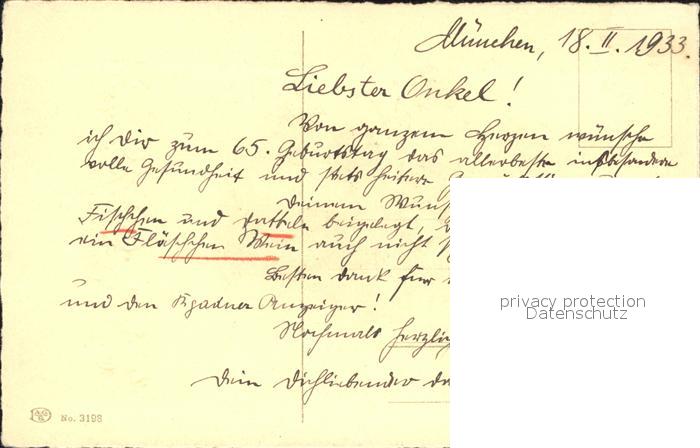 München, 18. II. 1933.
Liebster Onkel!
Von ganzem Herzen wünsche
ich dir zum 65. Geburtstag das allerbeste insbesondere
volle Gesundheit und stets heitere
Deinem
Fischchen und Datteln beigelegt,
ein Fläschchen Wein auch nicht
Besten dank für
und den Anzeiger!
Nochmals
Dein Dichliebender
privacy protection
Datenschutz
No. 3198